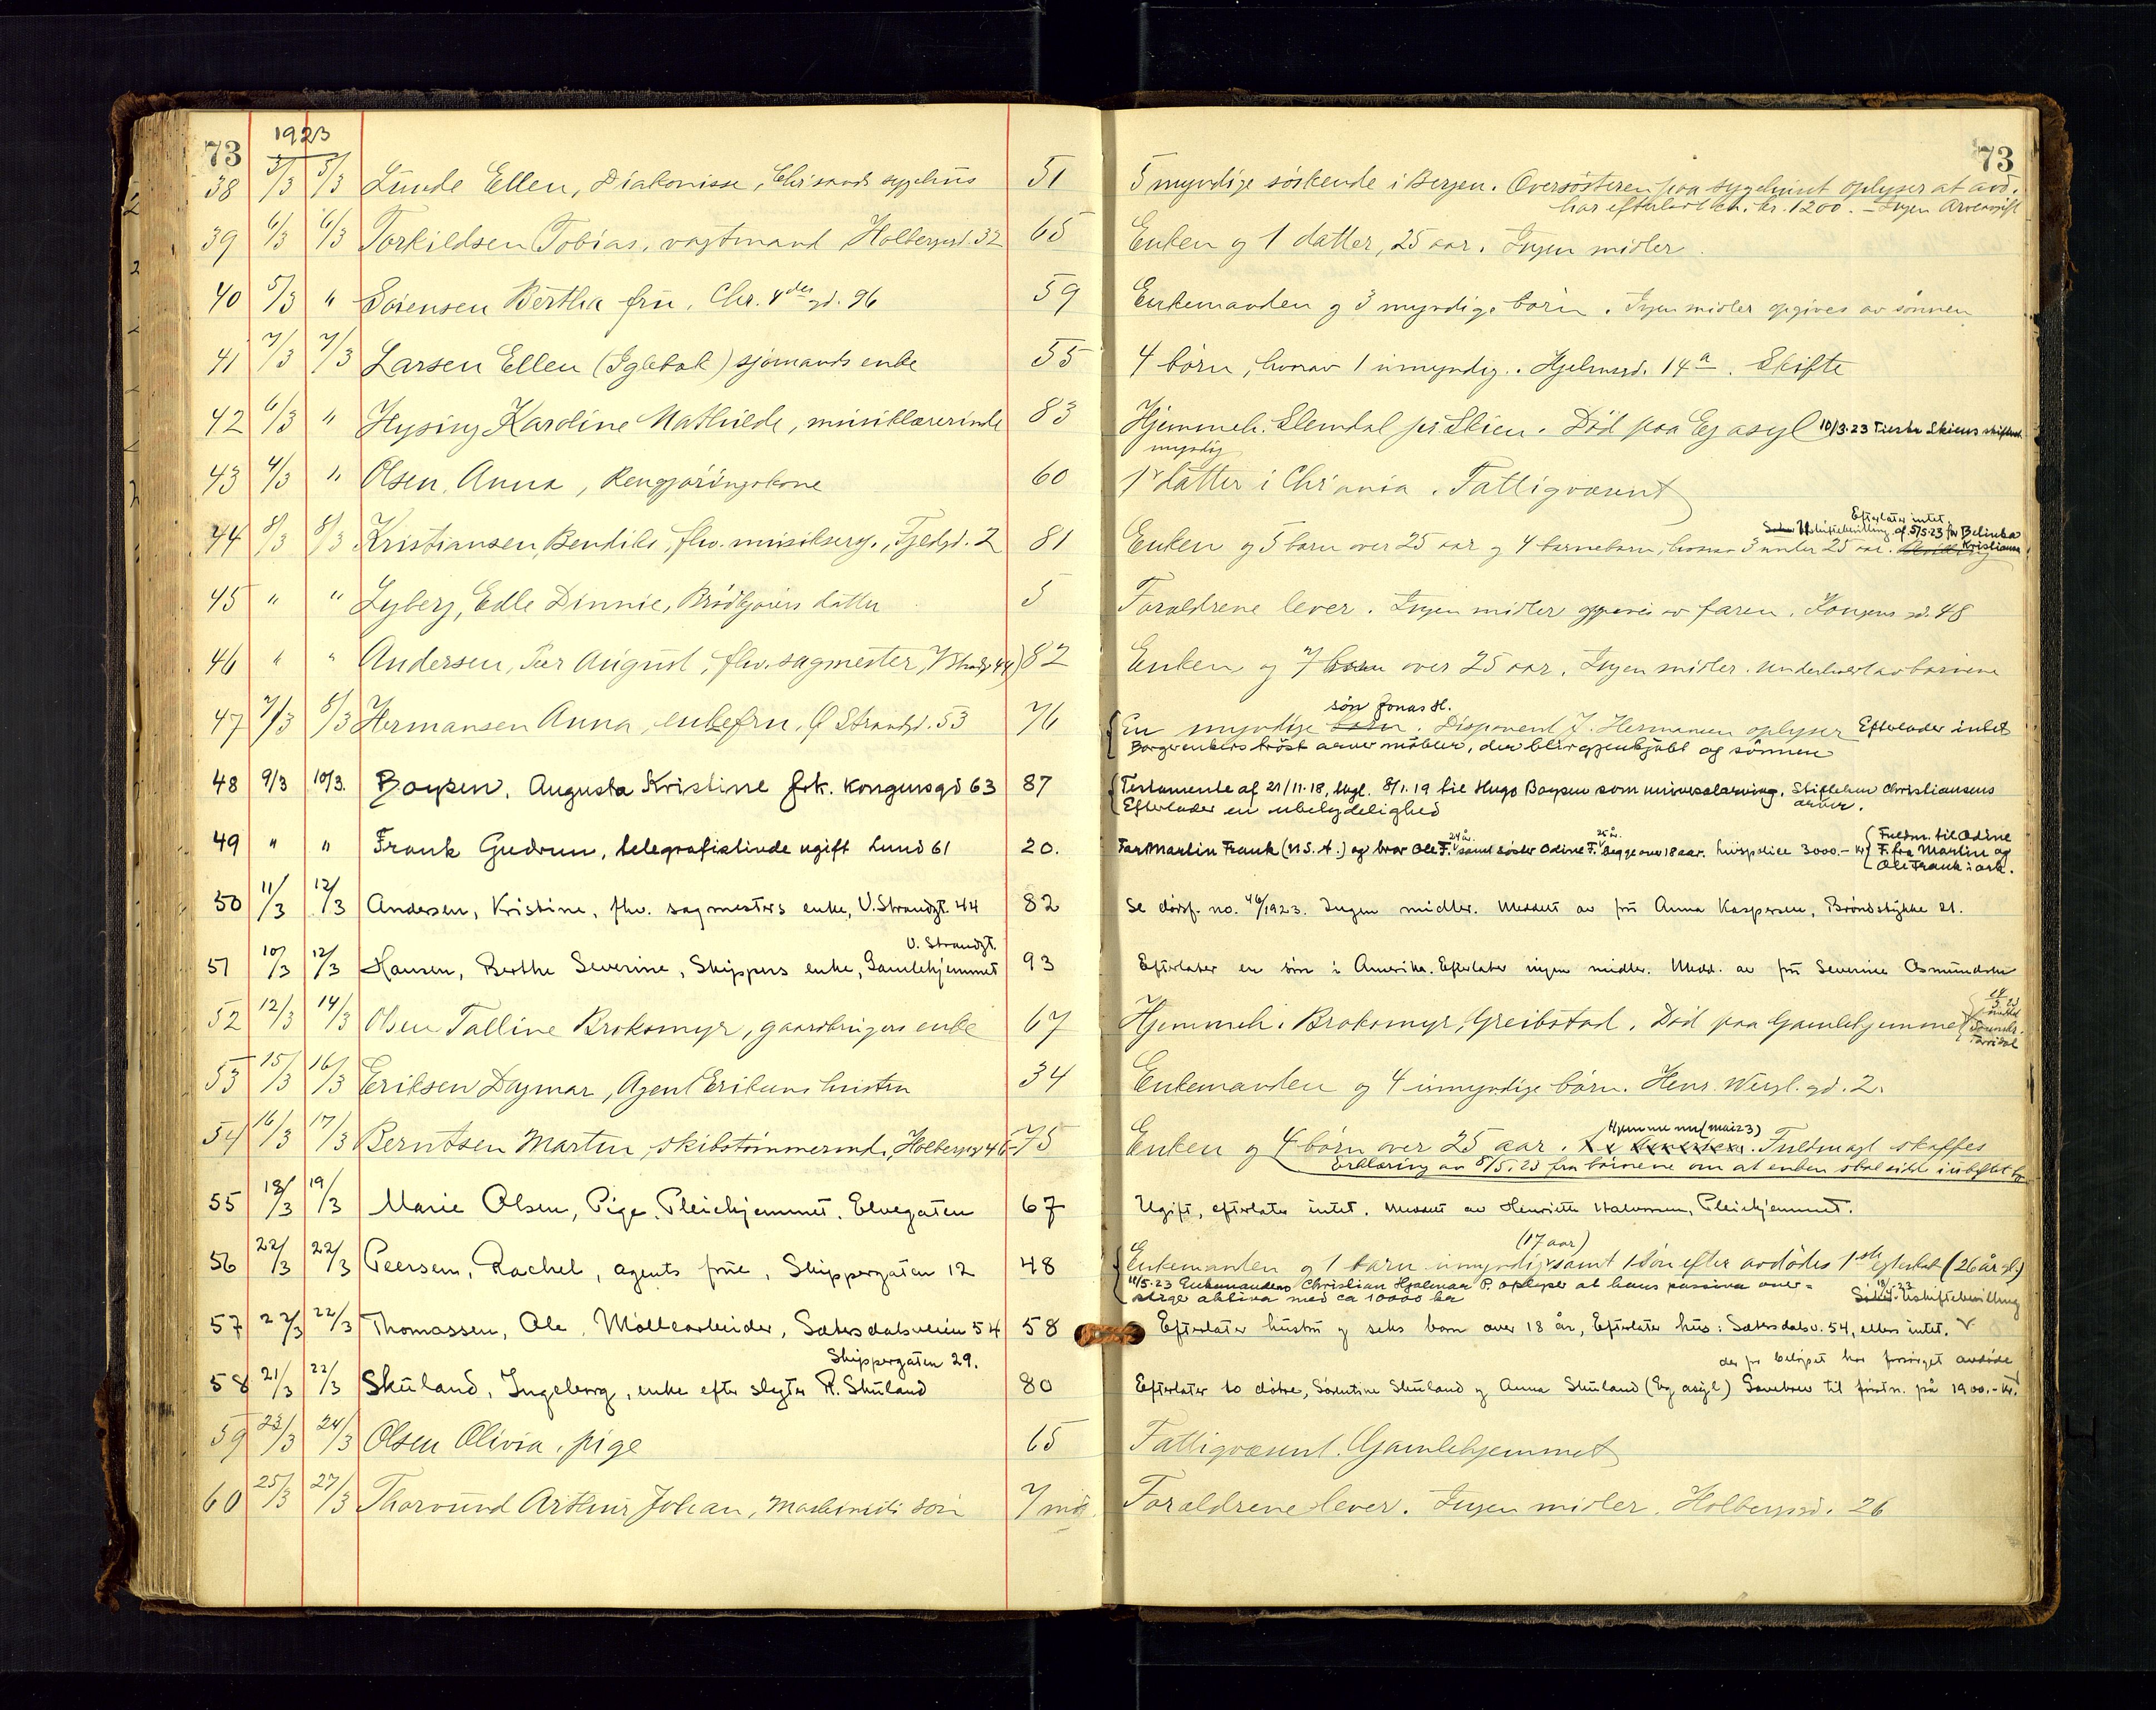 73 1923 73
38 3/3 5/3 Lunde Ellen, Diakonisse, Chr'sands sygehus 51 5 myndige söskende i Bergen. Oversösteren paa sygehuset oplyser at avd.
har efterladt ca. kr. 1200. – Ingen Arveavgift
39 6/3 6/3 Torkildsen Tobias, vagtmand Holbergsd. 32 65 Enken og 1 datter, 25 aar. Ingen midler.
40 5/3 " Sörensen Bertha fru, Chr. 4des gd. 96 59 Enkemanden og 3 myndige börn. Ingen midler opgives av sönnen
41 7/3 7/3 Larsen Ellen (Iglebæk) sjömands enke 55 4 börn, hvorav 1 umyndig. Hjelmsgd. 14a. Skifte
42 6/3 " Hysing Karoline Mathilde, musiklærerinde 83 Hjemmeh. Slemdal pr. Skien. Död paa Eg asyl 10/3.23 Tilstr Skiens skifteret
myndig
43 4/3 " Olsen, Anna, Rengjöringskone 60 1 datter i Chr'ania. Fattigvæsent
Efterlater intet
Uskiftebevilling af 5/5.23 for Belinka
44 8/3 8/3 Kristiansen Bendiks, fhv. musikserg., Tjedgd. 2 81 Enken og 5 barn over 25 aar og 4 barnebarn, hvorav 3 under 25 aar. Kristiansen
45 " " Lyberg, Edle Dinnie, Brödkjörers datter 5 Forældrene lever. Ingen midler opgives av faren. Kongens gd. 48
46 " " Andersen, Peer August, fhv. sagmester, V Strandg 44) 82 Enken og 7 barn over 25 aar. Ingen midler. Underholdt av barnene
sön Jonas H.
47 7/3 8/3 Hermansen Anna, enkefru, Ø Strandgd. 53 76 En myndige barn. Disponent J. Hermansen oplyser Efterlader intet
Borgerenkers tröst arver möbler, der blir gjenkjöbt og sönnen
48 9/3 10/3. Boysen, Augusta Kristine frk. Kongensgd 63 87 Testamente af 21/11.18, tingl. 8/1.19 til Hugo Boysen som universalarving. Stiftelsen Christiansens
Efterlader en ubetydelighed arver.
49 " " Frank Gudrun, telegrafistinde ugift Lund 61 20. Far Martin Frank (U.S.A.) og bror Ole F. 24 år. samt söster Odine F. 25 år. begge over 18 aar. livspolice 3000.– kr. Fuldm. til Odine
F. fra Martin og
Ole Frank i ark.
50 11/3 12/3 Andersen, Kristine, fhv. sagmesters enke, V. Strandgt. 44 82 Se dödsf. no. 46/1923. Ingen midler. Meddelt av fru Anna Kaspersen, Bröndstykke 21.
V. Strandgt.
51 10/3 12/3 Hansen, Berthe Severine, Skippers enke, Gamlehjemmet 93 Efterlater en sön i Amerika. Efterlater ingen midler. Medd. av fru Severine Osmundsen
52 12/3 14/3 Olsen Talline Broksmyr, gaardbrugers enke 67 Hjemmeh. Broksmyr, Greibstad. Död paa Gamlehjemmet
53 15/3 16/3 Eriksen Dagmar, Agent Eriksens hustru 34 Enkemanden og 4 umyndige börn. Henr. Wergl. gd. 2.
Hjemme nu (mai 23)
54 16/3 17/3 Berntsen Martin, skibstömmermd., Holbergsg 46 75 Enken og 4 börn over 25 aar. Fuldmagt skaffes
Erklæring av 8/5.23 fra börnene om at enken skal sidde i uskiftet bo
55 18/3 19/3 Marie Olsen, Pige. Pleiehjemmet. Elvegaten 67 Ugift, efterlater intet. Meddelt av Henriette Halvorsen, Pleiehjemmet.
(17 aar)
56 22/3 22/3 Peersen, Rachel, agents frue, Skippergaten 12 48 Enkemanden og 1 barn umyndig samt 1 sön efter avdödes 1ste egteskab (26 år gl.)
11/5.23 Enkemanden Christian Hjalmar P. oplyser at hans passiva over-
stige aktiva med ca 10000 kr Uskiftebevilling
57 22/3 22/3 Thomassen, Ole, Möllearbeider, Sætersdalsveien 54 58 Efterlater hustru og seks barn over 18 år, Efterlater hus: Sætersdalsv. 54, ellers intet. V
Skippergaten 29. der for belöpet har forsörget avdöde
58 21/3 22/3 Skuland, Ingeborg, enke efter slagter R. Skuland 80 Efterlater to dötre, Sörentine Skuland og Anna Skuland (Eg asyl) Gavebrev til förstn. på 1900.– kr.
59 23/3 24/3 Olsen Olivia, pige 65 Fattigvæsent. Gamlehjemmet
60 25/3 27/3 Thorsund Arthur Johan, Maskinists sön 7 md. Forældrene lever. Ingen midler. Holbergsgd. 26